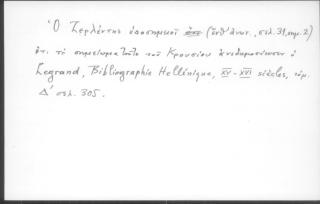 Ὁ Ζερλέντης ὑποσημειοῖ (ἔνθ' ἀνωτ., σελ. 31, σημ. 2)
ὅτι τὸ σημείωμα τοῦτο τοῦ Κρουσίου ἀνεδημοσίευσεν ὁ
Legrand, Bibliographie Hellénique, XV-XVI siècles, τόμ.
Δ' σελ. 305.